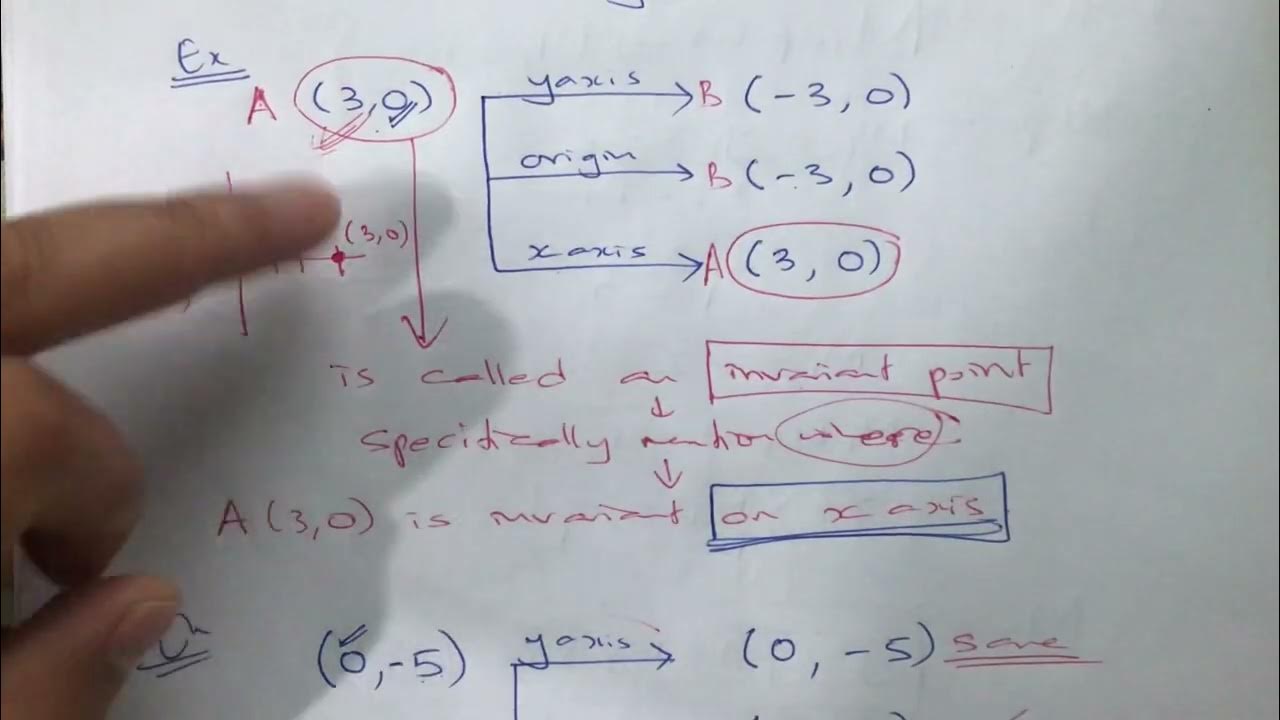 Ex
A (3,0)
y axis B (-3, 0)
origin B (-3, 0)
x axis A (3, 0)
(3,0)
is called an invariant point
Specifically mention where
A (3,0) is invariant on x axis
(0,-5) y axis (0, -5) same